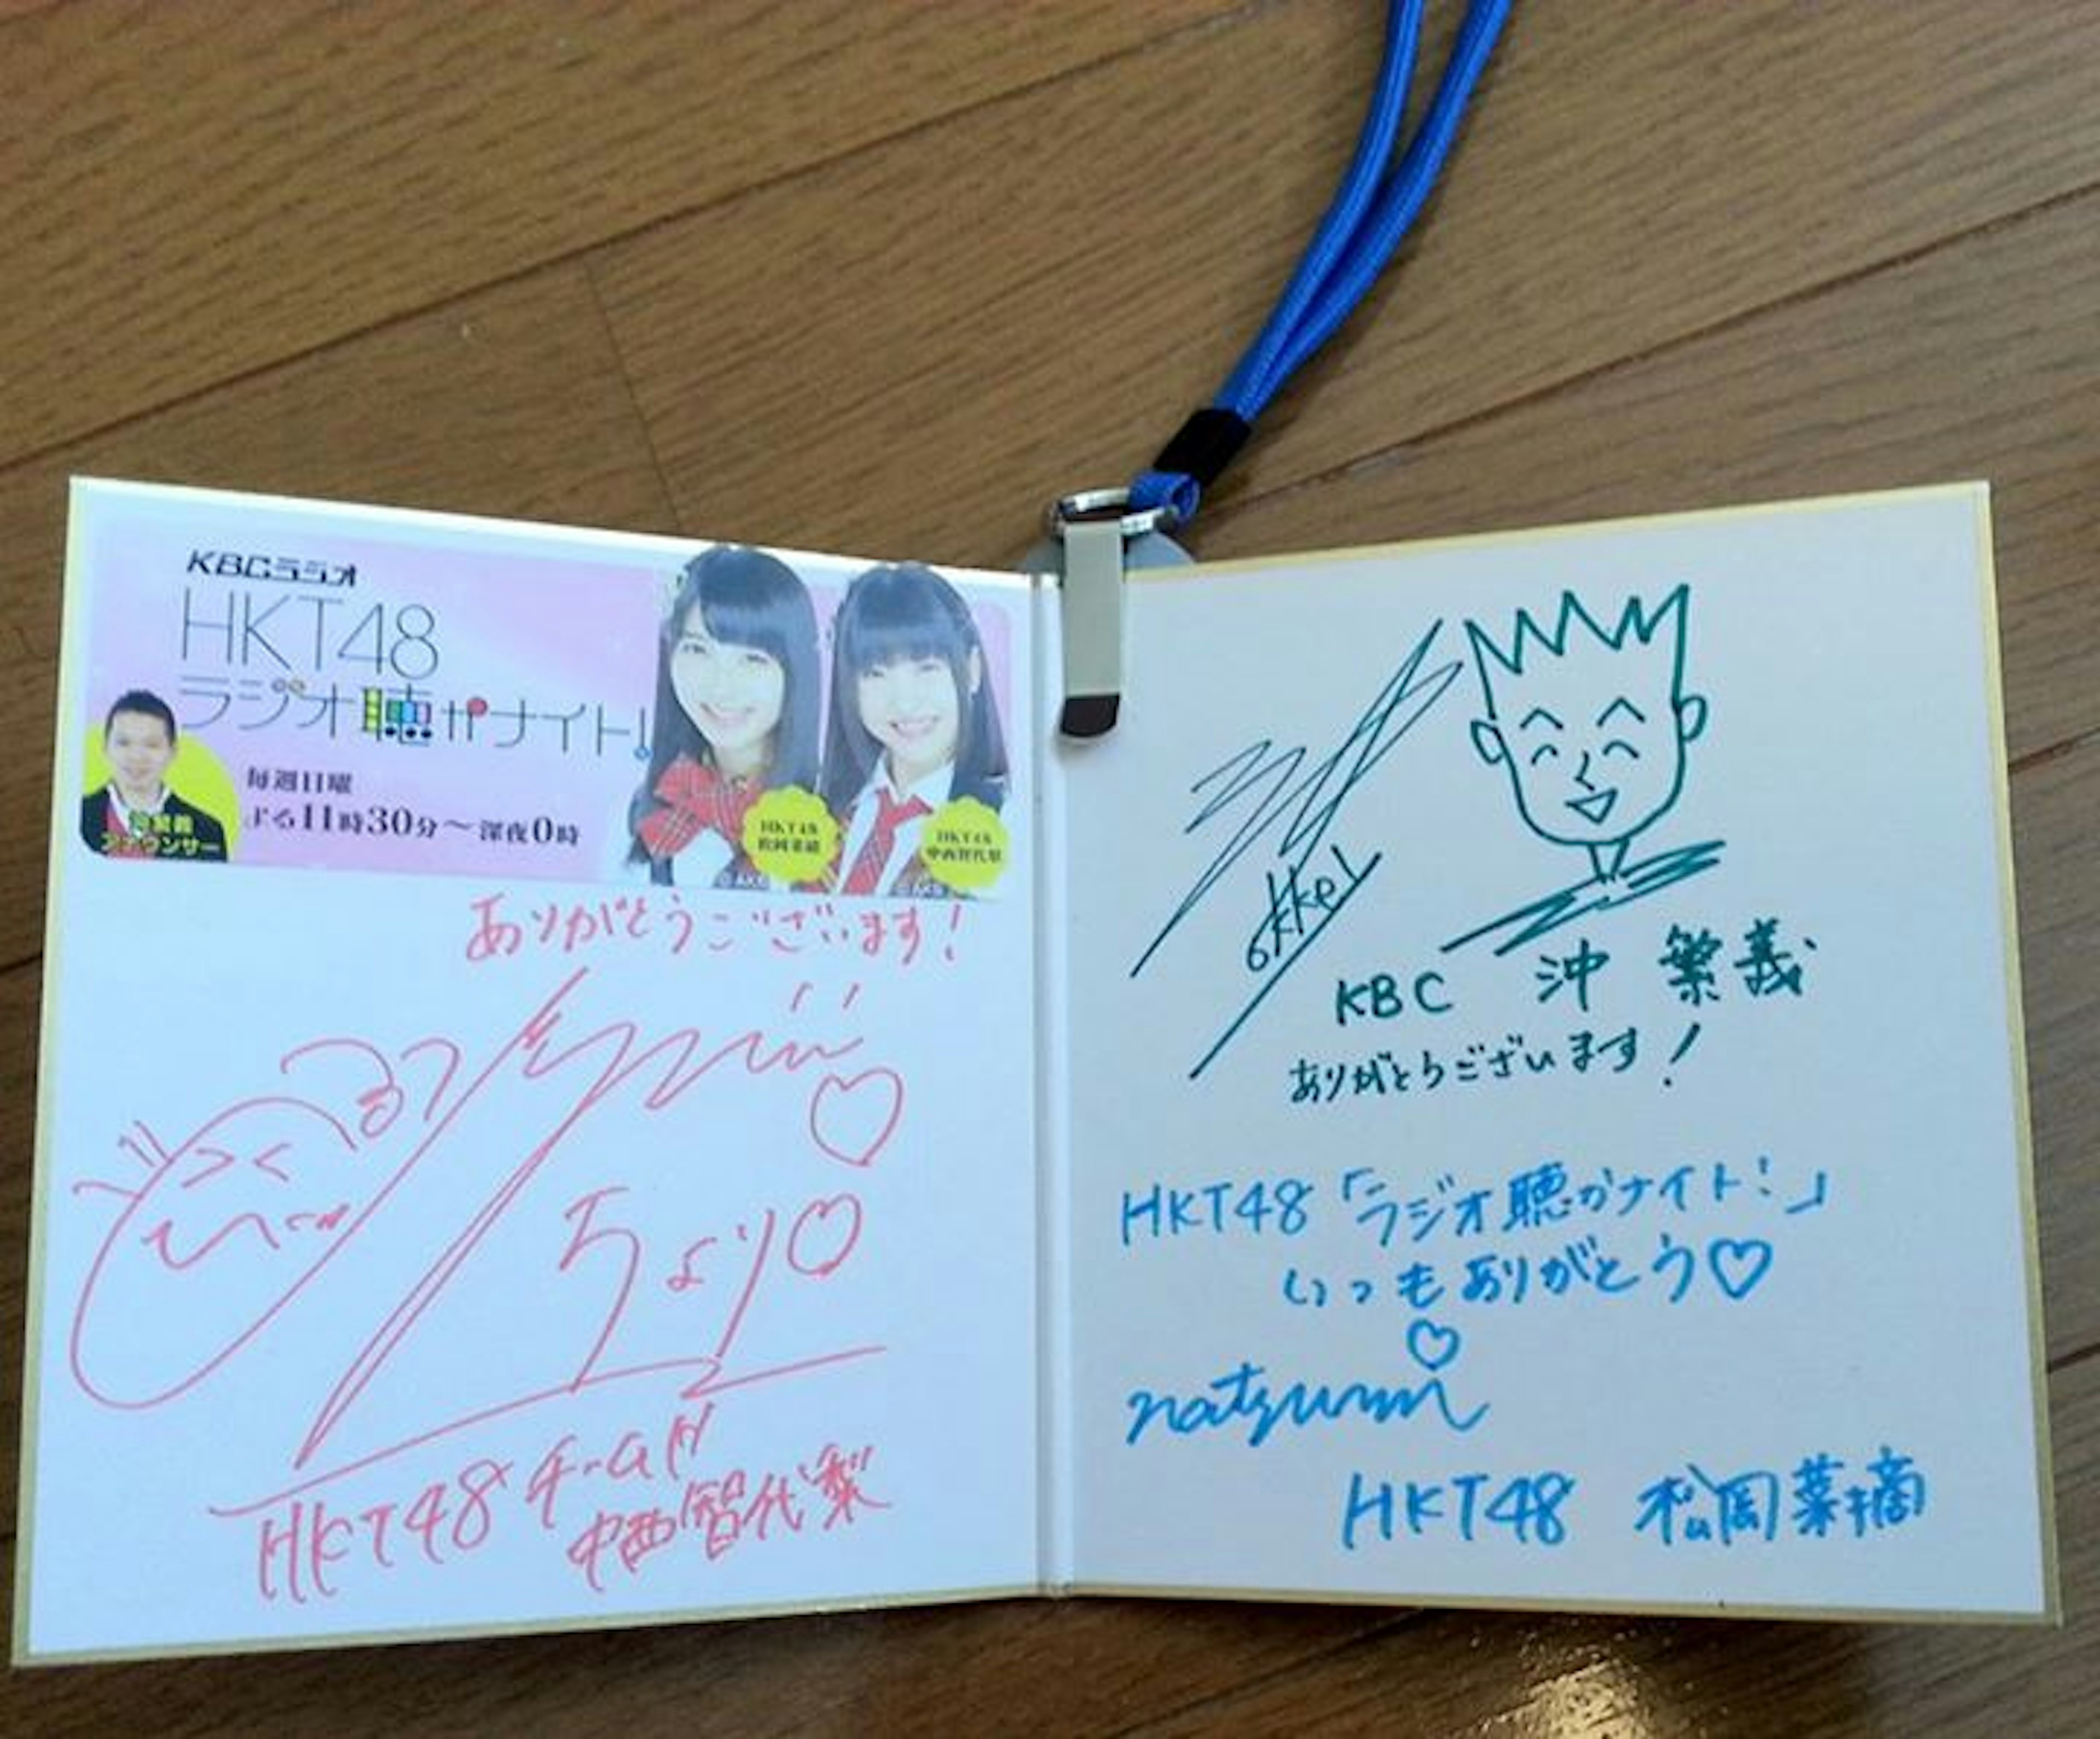 KBCラジオ
HKT48
ラジオ聴かナイト!
毎週日曜
よる11時30分～深夜0時
沖繁義
アナウンサー
HKT48
松岡菜摘
HKT48
中西智代梨
ありがとうございます!
ちょり♡
HKT48 チームH
中西智代梨
okkey
KBC 沖 繁義
ありがとうございます!
HKT48「ラジオ聴かナイト!」
いつもありがとう♡
natsumi
HKT48 松岡菜摘